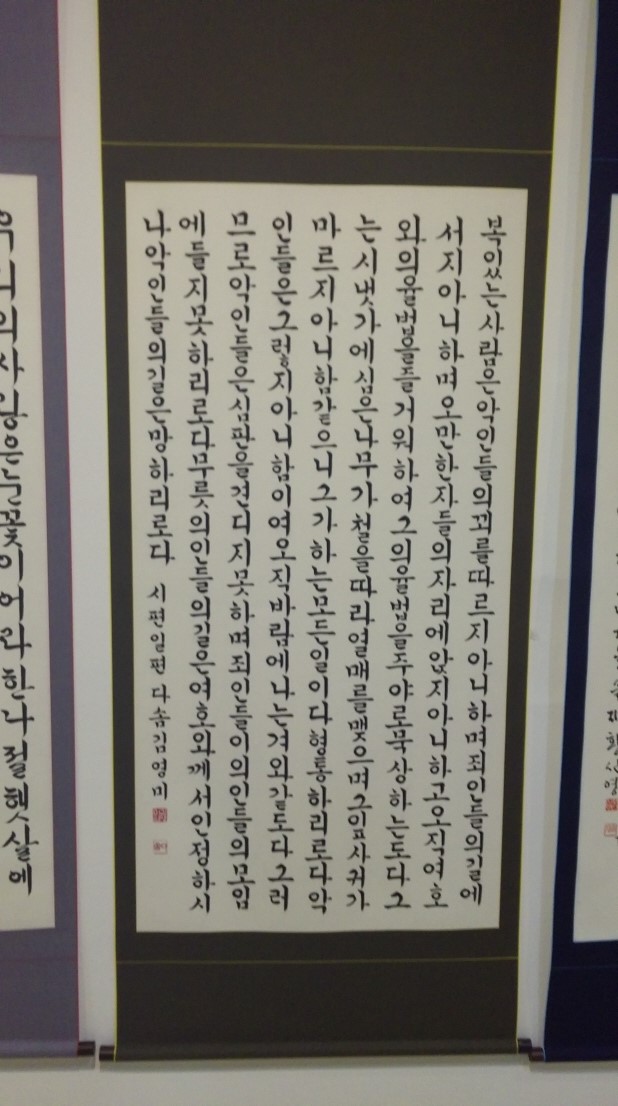 복있는사람은악인들의꾀를따르지아니하며죄인들의길에
서지아니하며오만한자들의자리에앉지아니하고오직여호
와의율법을즐거워하여그의율법을주야로묵상하는도다그
는시냇가에심은나무가철을따라열매를맺으며그잎사귀가
마르지아니함같으니그가하는모든일이다형통하리로다악
인들은그렇지아니함이여오직바람에나는겨와같도다그러
므로악인들은심판을견디지못하며죄인들이의인들의모임
에들지못하리로다무릇의인들의길은여호와께서인정하시
나악인들의길은망하리로다 시편일편 다솜김영미
우리의사랑은눈꽃이어라한나절햇살에